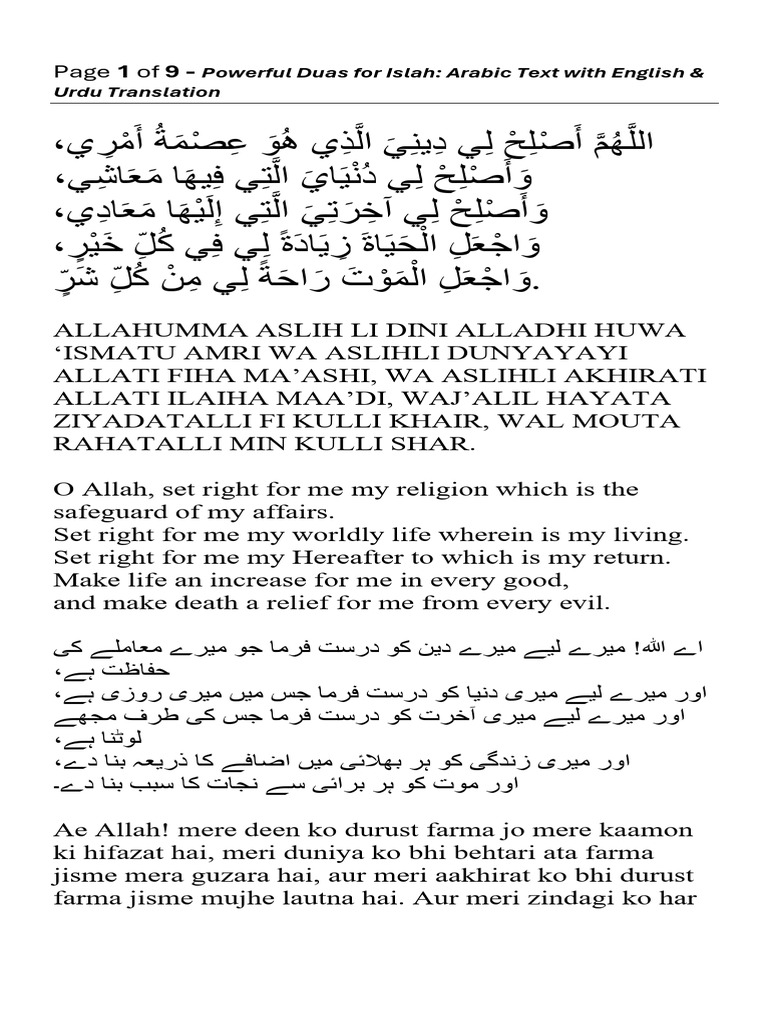 Page 1 of 9 - Powerful Duas for Islah: Arabic Text with English &
Urdu Translation
اللَّهُمَّ أَصْلِحْ لِي دِينِيَ الَّذِي هُوَ عِصْمَةُ أَمْرِي،
وَأَصْلِحْ لِي دُنْيَايَ الَّتِي فِيهَا مَعَاشِي،
وَأَصْلِحْ لِي آخِرَتِيَ الَّتِي إِلَيْهَا مَعَادِي،
وَاجْعَلِ الْحَيَاةَ زِيَادَةً لِي فِي كُلِّ خَيْرٍ،
وَاجْعَلِ الْمَوْتَ رَاحَةً لِي مِنْ كُلِّ شَرٍّ.
ALLAHUMMA ASLIH LI DINI ALLADHI HUWA
‘ISMATU AMRI WA ASLIHLI DUNYAYAYI
ALLATI FIHA MA’ASHI, WA ASLIHLI AKHIRATI
ALLATI ILAIHA MAA’DI, WAJ’ALIL HAYATA
ZIYADATALLI FI KULLI KHAIR, WAL MOUTA
RAHATALLI MIN KULLI SHAR.
O Allah, set right for me my religion which is the
safeguard of my affairs.
Set right for me my worldly life wherein is my living.
Set right for me my Hereafter to which is my return.
Make life an increase for me in every good,
and make death a relief for me from every evil.
اے اللہ! میرے لیے میرے دین کو درست فرما جو میرے معاملے کی
حفاظت ہے،
اور میرے لیے میری دنیا کو درست فرما جس میں میری روزی ہے،
اور میرے لیے میری آخرت کو درست فرما جس کی طرف مجھے
لوٹنا ہے،
اور میری زندگی کو ہر بھلائی میں اضافے کا ذریعہ بنا دے،
اور موت کو ہر برائی سے نجات کا سبب بنا دے۔
Ae Allah! mere deen ko durust farma jo mere kaamon
ki hifazat hai, meri duniya ko bhi behtari ata farma
jisme mera guzara hai, aur meri aakhirat ko bhi durust
farma jisme mujhe lautna hai. Aur meri zindagi ko har